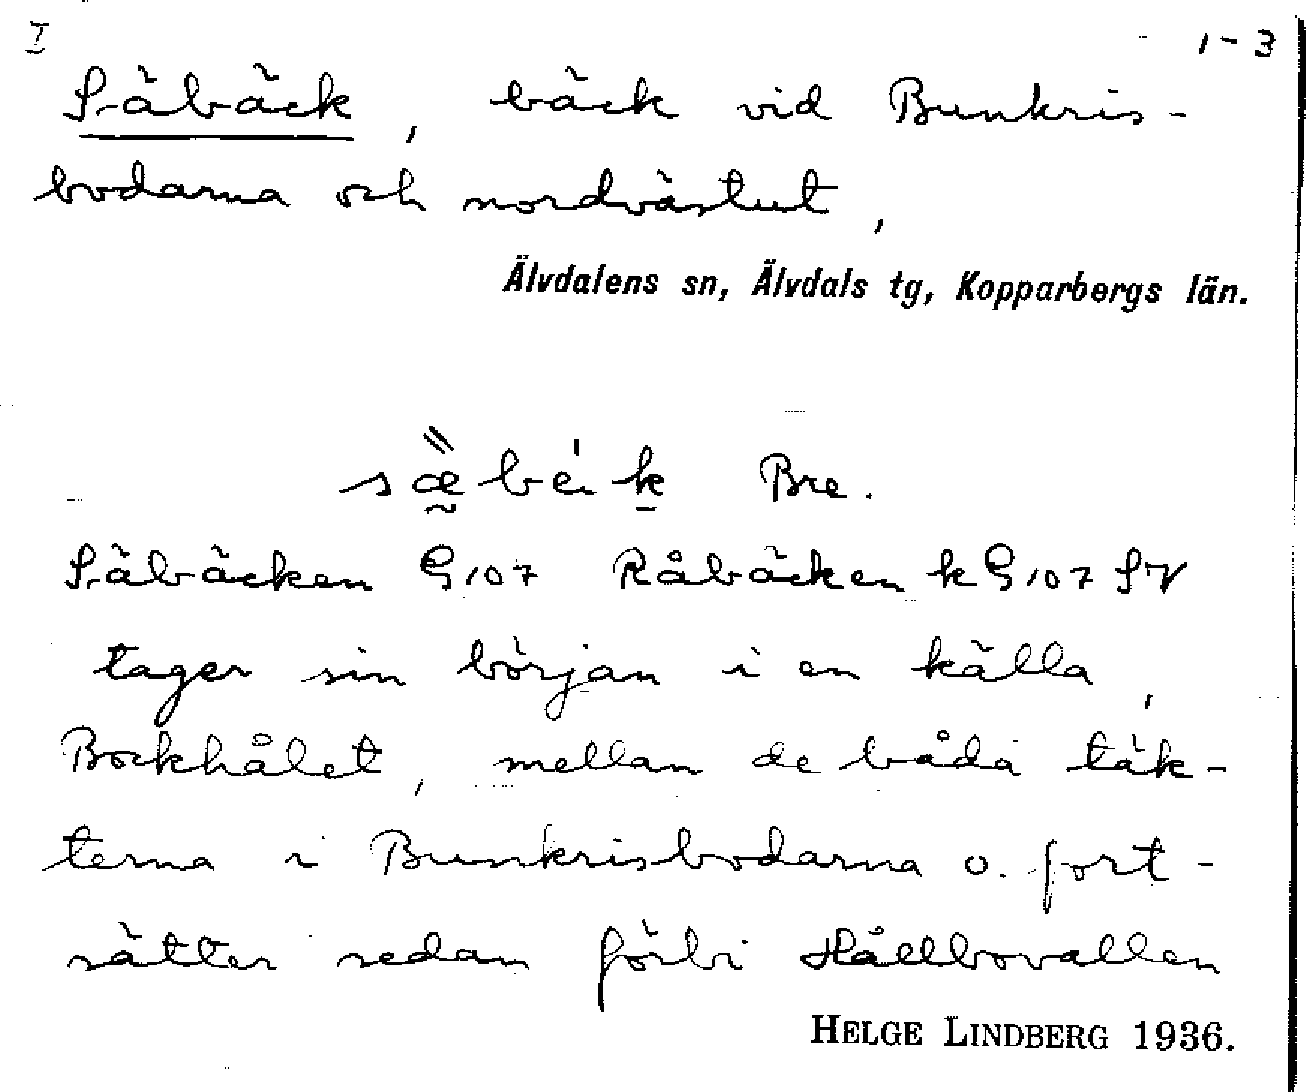 I 1-3
Säbäck, bäck vid Bunkris-
bodarna och nordvästut,
Älvdalens sn, Älvdals tg, Kopparbergs län.
Bre.
Säbäcken G107 Råbäcken kG107 SV
tager sin början i en källa,
Bockhålet, mellan de båda täk-
terna i Bunkrisbodarna o. fort-
sätter sedan förbi Hållbovallen
HELGE LINDBERG 1936.